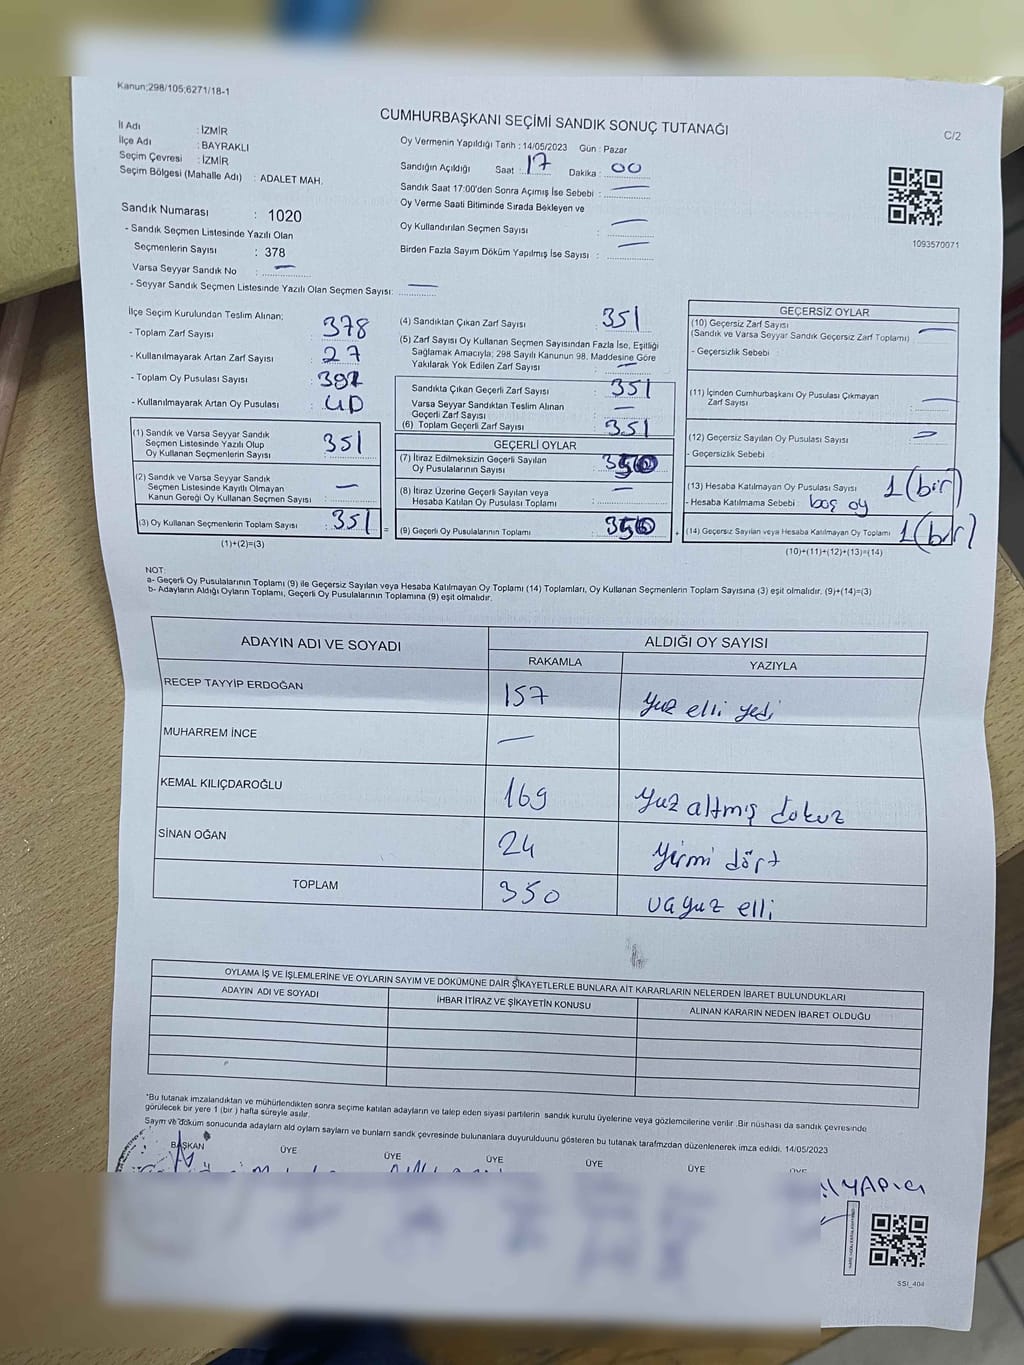 Kanun;298/105;6271/18-1
CUMHURBAŞKANI SEÇİMİ SANDIK SONUÇ TUTANAĞI
C/2
İl Adı : İZMİR
İlçe Adı : BAYRAKLI
Seçim Çevresi : İZMİR
Seçim Bölgesi (Mahalle Adı) : ADALET MAH.
Sandık Numarası : 1020
- Sandık Seçmen Listesinde Yazılı Olan
Seçmenlerin Sayısı : 378
Varsa Seyyar Sandık No : —
- Seyyar Sandık Seçmen Listesinde Yazılı Olan Seçmen Sayısı: —
Oy Vermenin Yapıldığı Tarih : 14/05/2023 Gün : Pazar
Sandığın Açıldığı Saat : 17 Dakika : 00
Sandık Saat 17:00'den Sonra Açımış İse Sebebi : —
Oy Verme Saati Bitiminde Sırada Bekleyen ve
Oy Kullandırılan Seçmen Sayısı : —
Birden Fazla Sayım Döküm Yapılmış İse Sayısı : —
1093570071
İlçe Seçim Kurulundan Teslim Alınan;
- Toplam Zarf Sayısı : 378
- Kullanılmayarak Artan Zarf Sayısı : 27
- Toplam Oy Pusulası Sayısı :
- Kullanılmayarak Artan Oy Pusulası :
(1) Sandık ve Varsa Seyyar Sandık
Seçmen Listesinde Yazılı Olup
Oy Kullanan Seçmenlerin Sayısı : 351
(2) Sandık ve Varsa Seyyar Sandık
Seçmen Listesinde Kayıtlı Olmayan
Kanun Gereği Oy Kullanan Seçmen Sayısı : —
(3) Oy Kullanan Seçmenlerin Toplam Sayısı : 351 =
(1)+(2)=(3)
(4) Sandıktan Çıkan Zarf Sayısı : 351
(5) Zarf Sayısı Oy Kullanan Seçmen Sayısından Fazla İse, Eşitliği
Sağlamak Amacıyla; 298 Sayılı Kanunun 98. Maddesine Göre
Yakılarak Yok Edilen Zarf Sayısı : —
Sandıkta Çıkan Geçerli Zarf Sayısı : 351
Varsa Seyyar Sandıktan Teslim Alınan
Geçerli Zarf Sayısı : —
(6) Toplam Geçerli Zarf Sayısı : 351
GEÇERLİ OYLAR
(7) İtiraz Edilmeksizin Geçerli Sayılan
Oy Pusulalarının Sayısı : 350
(8) İtiraz Üzerine Geçerli Sayılan veya
Hesaba Katılan Oy Pusulası Toplamı : —
(9) Geçerli Oy Pusulalarının Toplamı : 350 +
GEÇERSİZ OYLAR
(10) Geçersiz Zarf Sayısı : —
(Sandık ve Varsa Seyyar Sandık Geçersiz Zarf Toplamı)
- Geçersizlik Sebebi :
(11) İçinden Cumhurbaşkanı Oy Pusulası Çıkmayan
Zarf Sayısı : —
(12) Geçersiz Sayılan Oy Pusulası Sayısı : —
- Geçersizlik Sebebi :
(13) Hesaba Katılmayan Oy Pusulası Sayısı : 1 (bir)
- Hesaba Katılmama Sebebi : boş oy
(14) Geçersiz Sayılan veya Hesaba Katılmayan Oy Toplamı : 1 (bir)
(10)+(11)+(12)+(13)=(14)
NOT:
a- Geçerli Oy Pusulalarının Toplamı (9) ile Geçersiz Sayılan veya Hesaba Katılmayan Oy Toplamı (14) Toplamları, Oy Kullanan Seçmenlerin Toplam Sayısına (3) eşit olmalıdır. (9)+(14)=(3)
b- Adayların Aldığı Oyların Toplamı, Geçerli Oy Pusulalarının Toplamına (9) eşit olmalıdır.
ADAYIN ADI VE SOYADI ALDIĞI OY SAYISI
RAKAMLA YAZIYLA
RECEP TAYYİP ERDOĞAN 157 yüz elli yedi
MUHARREM İNCE —
KEMAL KILIÇDAROĞLU 169 yüz altmış dokuz
SİNAN OĞAN 24 yirmi dört
TOPLAM 350 üçyüz elli
OYLAMA İŞ VE İŞLEMLERİNE VE OYLARIN SAYIM VE DÖKÜMÜNE DAİR ŞİKAYETLERLE BUNLARA AİT KARARLARIN NELERDEN İBARET BULUNDUKLARI
ADAYIN ADI VE SOYADI İHBAR İTİRAZ VE ŞİKAYETİN KONUSU ALINAN KARARIN NEDEN İBARET OLDUĞU
*Bu tutanak imzalandıktan ve mühürlendikten sonra seçime katılan adayların ve talep eden siyasi partilerin sandık kurulu üyelerine veya gözlemcilerine verilir .Bir nüshası da sandık çevresinde
görülecek bir yere 1 (bir ) hafta süreyle asılır.
Sayım ve döküm sonucunda adayların ald oyların sayıları ve bunların sandk çevresinde bulunanlara duyurulduunu gösteren bu tutanak tarafmızdan düzenlenerek imza edildi. 14/05/2023
BAŞKAN ÜYE ÜYE ÜYE ÜYE ÜYE ÜYE
YAPICI
SSİ_404